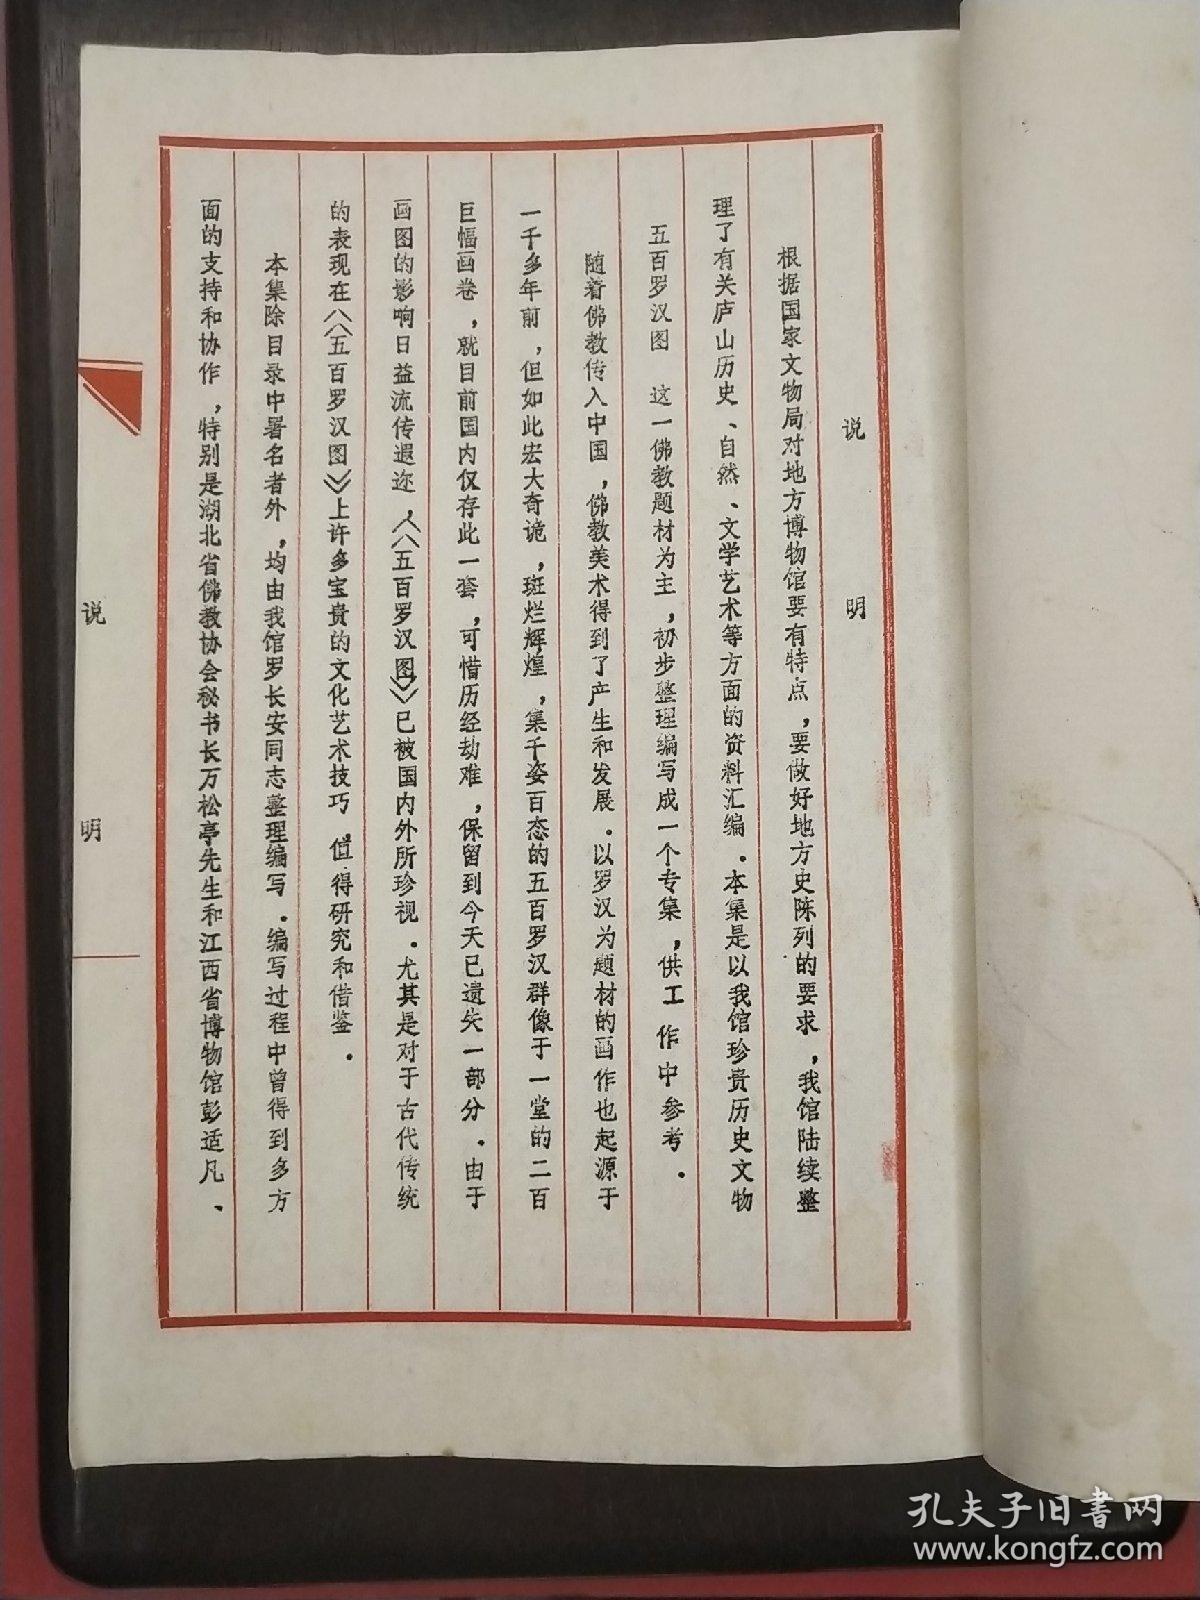 说 明
根据国家文物局对地方博物馆要有特点，要做好地方史陈列的要求，我馆陆续整
理了有关庐山历史、自然、文学艺术等方面的资料汇编．本集是以我馆珍贵历史文物
五百罗汉图 这一佛教题材为主，初步整理编写成一个专集，供工作中参考．
随着佛教传入中国，佛教美术得到了产生和发展．以罗汉为题材的画作也起源于
一千多年前，但如此宏大奇诡，斑烂辉煌，集千姿百态的五百罗汉群像于一堂的二百
巨幅画卷，就目前国内仅存此一套，可惜历经劫难，保留到今天已遗失一部分．由于
画图的影响日益流传遐迩，《五百罗汉图》已被国内外所珍视．尤其是对于古代传统
的表现在《五百罗汉图》上许多宝贵的文化艺术技巧 值得研究和借鉴．
本集除目录中署名者外，均由我馆罗长安同志整理编写．编写过程中曾得到多方
面的支持和协作，特别是湖北省佛教协会秘书长万松亭先生和江西省博物馆彭适凡、
说 明
孔夫子旧书网
www.kongfz.com